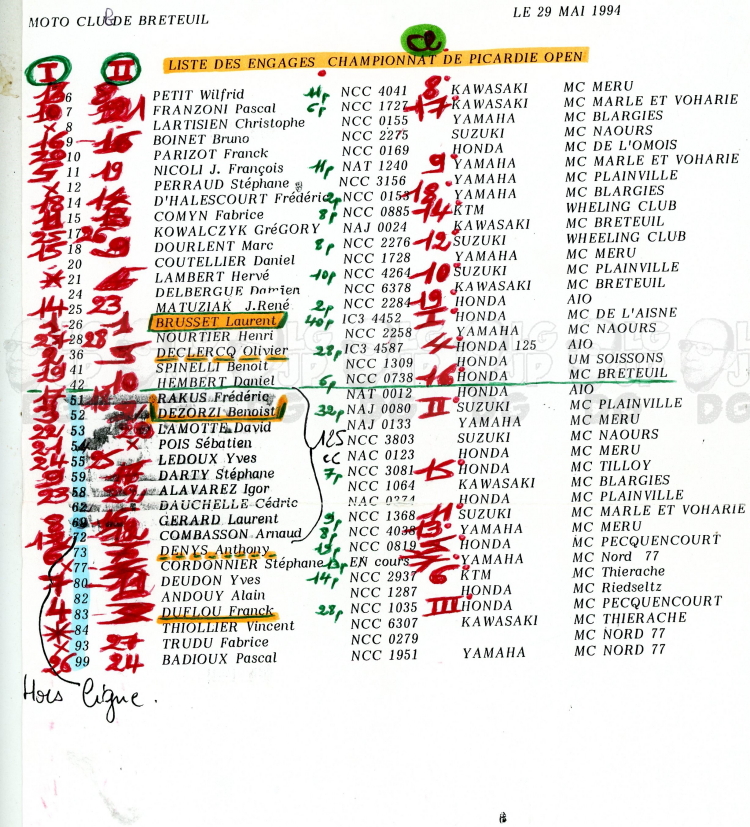 MOTO CLUB DE BRETEUIL LE 29 MAI 1994
LISTE DES ENGAGES CHAMPIONNAT DE PICARDIE OPEN
I II
6 PETIT Wilfrid 11p NCC 4041 8 KAWASAKI MC MERU
7 FRANZONI Pascal 6p NCC 1727 17 KAWASAKI MC MARLE ET VOHARIE
8 LARTISIEN Christophe NCC 0155 YAMAHA MC BLARGIES
9 BOINET Bruno NCC 2275 SUZUKI MC NAOURS
10 PARIZOT Franck NCC 0169 HONDA MC DE L'OMOIS
11 19 NICOLI J. François 11p NAT 1240 9 YAMAHA MC MARLE ET VOHARIE
12 PERRAUD Stéphane NCC 3156 YAMAHA MC PLAINVILLE
14 D'HALESCOURT Frédéric 2p NCC 0153 18 YAMAHA MC BLARGIES
15 COMYN Fabrice 8p NCC 0885 14 KTM WHELING CLUB
17 KOWALCZYK GréGORY NAJ 0024 KAWASAKI MC BRETEUIL
18 9 DOURLENT Marc 8p NCC 2276 12 SUZUKI WHEELING CLUB
20 COUTELLIER Daniel NCC 1728 YAMAHA MC MERU
21 LAMBERT Hervé 10p NCC 4264 10 SUZUKI MC PLAINVILLE
24 DELBERGUE Damien NCC 6378 KAWASAKI MC BRETEUIL
25 23 MATUZIAK J.René 2p NCC 2284 19 HONDA AIO
26 1 BRUSSET Laurent 40p IC3 4452 I HONDA MC DE L'AISNE
28 28 NOURTIER Henri NCC 2258 YAMAHA MC NAOURS
36 DECLERCQ Olivier 28p IC3 4587 4 HONDA 125 AIO
41 SPINELLI Benoit NCC 1309 HONDA UM SOISSONS
42 10 HEMBERT Daniel 6p NCC 0738 16 HONDA MC BRETEUIL
51 RAKUS Frédéric NAT 0012 HONDA AIO
52 DEZORZI Benoist 32p NAJ 0080 II SUZUKI MC PLAINVILLE
53 LAMOTTE David NAJ 0133 YAMAHA MC MERU
54 POIS Sébatien 125 NCC 3803 SUZUKI MC NAOURS
55 25 LEDOUX Yves cc NAC 0123 HONDA MC MERU
59 DARTY Stéphane 7p NCC 3081 15 HONDA MC TILLOY
58 ALAVAREZ Igor NCC 1064 KAWASAKI MC BLARGIES
62 DAUCHELLE Cédric NAC 0274 HONDA MC PLAINVILLE
69 GERARD Laurent 9p NCC 1368 11 SUZUKI MC MARLE ET VOHARIE
72 COMBASSON Arnaud 8p NCC 4038 13 YAMAHA MC MERU
73 DENYS Anthony 15p NCC 0819 HONDA MC PECQUENCOURT
77 CORDONNIER Stéphane 13p EN cours YAMAHA MC Nord 77
80 DEUDON Yves 14p NCC 2937 6 KTM MC Thierache
82 ANDOUY Alain NCC 1287 HONDA MC Riedseltz
83 DUFLOU Franck 28p NCC 1035 III HONDA MC PECQUENCOURT
84 THIOLLIER Vincent NCC 6307 KAWASAKI MC THIERACHE
93 27 TRUDU Fabrice NCC 0279 MC NORD 77
26 99 24 BADIOUX Pascal NCC 1951 YAMAHA MC NORD 77
Hors ligne.